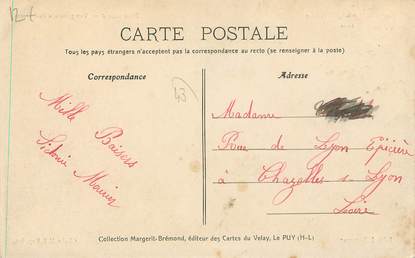 CARTE POSTALE
Tous les pays étrangers n'acceptent pas la correspondance au recto (se renseigner à la poste)
Correspondance
Adresse
43
Mille
Baisers
Sidonie
Madame
Rue de Lyon Epicière
à Chazelles s- Lyon
Loire
Collection Margerit-Brémond, éditeur des Cartes du Velay, Le PUY (H-L)